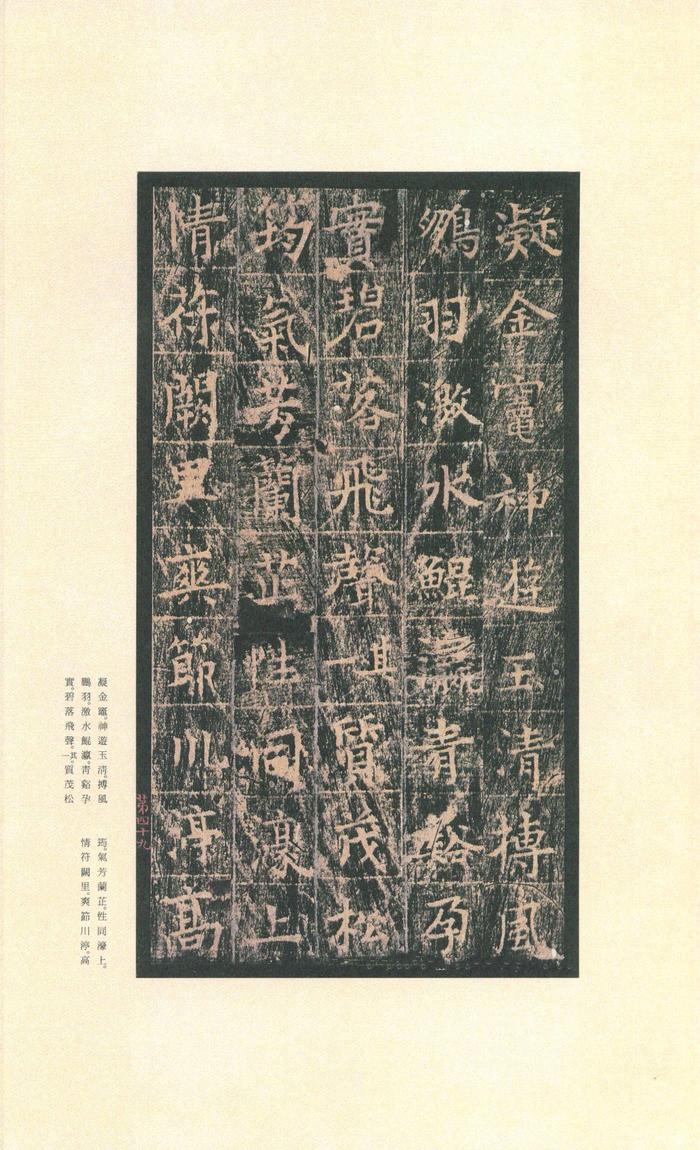 凝金竈神遊玉清搏風
鵬羽激水鯤瀛青谿孕
實碧落飛聲其一質茂松
筠氣芳蘭芷性同濠上
情符闕里爽節川渟高
第四十九
凝金竈。神遊玉清。搏風
鵬羽。激水鯤瀛。靑谿孕
實。碧落飛聲。其一質茂松
筠。氣芳蘭芷。性同濠上。
情符闕里。爽節川渟。高